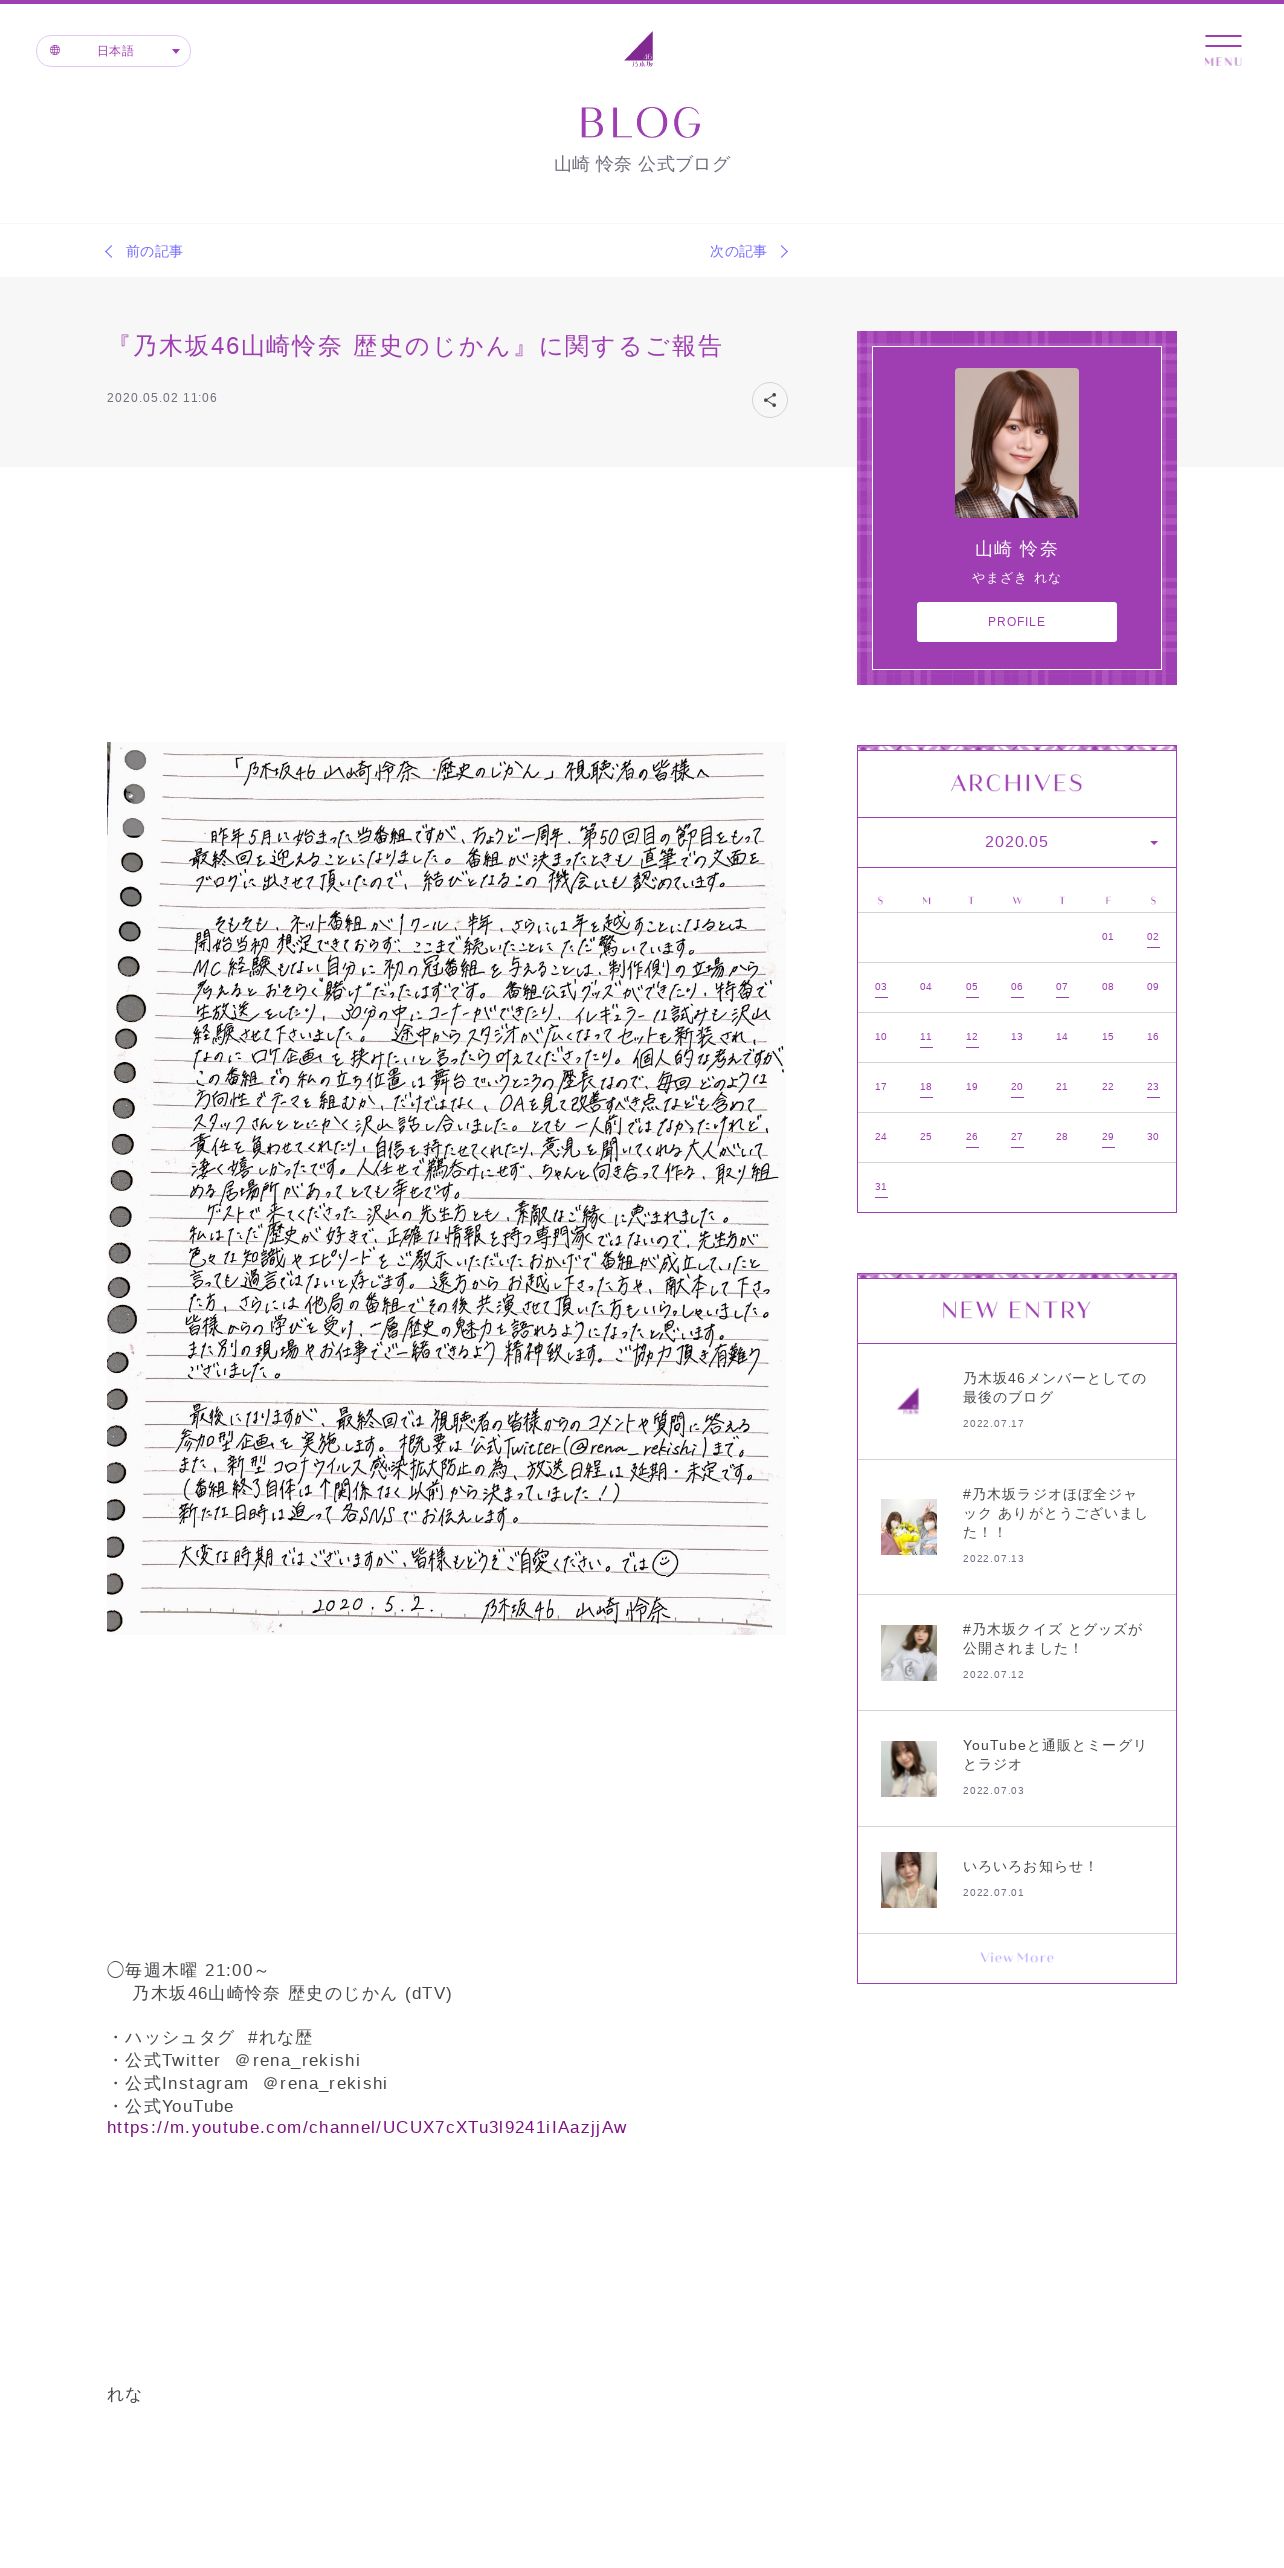 日本語
乃木坂46
MENU
BLOG
山崎 怜奈 公式ブログ
前の記事
次の記事
『乃木坂46山崎怜奈 歴史のじかん』に関するご報告
2020.05.02 11:06
「乃木坂46 山崎怜奈 歴史のじかん」視聴者の皆様へ
昨年5月に始まった当番組ですが、ちょうど一周年、第50回目の節目をもって
最終回を迎えることになりました。番組が決まったときも直筆での文面を
ブログに出させて頂いたので、結びとなるこの機会にも認めています。
そもそも、ネット番組が1クール、半年、さらには年を越すことになるとは
開始当初想定できておらず、ここまで続いたことにただ驚いています。
MC経験もない自分に初の冠番組を与えることは、制作側の立場から
考えるとおそらく"賭け"だったはずです。番組公式グッズができたり、特番で
生放送をしたり、30分の中にコーナーができたり、イレギュラーな試みも沢山
経験させて下さいました。途中からスタジオが広くなってセットも新装され、
なのにロケ企画も挟みたいと言ったら叶えてくださったり。個人的な考えですが
この番組での私の立ち位置は舞台でいうところの座長なので、毎回どのような
方向性でテーマを組むか、だけではなく、OAを見て改善すべき点なども含めて
スタッフさんととにかく沢山話し合いました。とても一人前ではなかったけれど、
責任を負わせてくれたり、自信を持たせてくれたり、意見を聞いてくれる大人がいて
凄く嬉しかったです。人任せで鵜呑みにせず、ちゃんと向き合って作る、取り組
める居場所があってとても幸せです。
ゲストで来てくださった沢山の先生方とも、素敵なご縁に恵まれました。
私はただ歴史が好きで、正確な情報を持つ専門家ではないので、先生方が
色々な知識やエピソードをご教示いただいたおかげで番組が成立していたと
言っても過言ではないと存じます。遠方からお越し下さった方や、献本して下さっ
た方、さらには他局の番組でその後共演させて頂いた方もいらっしゃいました。
皆様からの学びを受け、一層歴史の魅力を語れるようになったと思います。
また別の現場やお仕事でご一緒できるよう精神致します。ご協力頂き有難う
ございました。
最後になりますが、最終回では視聴者の皆様からのコメントや質問に答える
参加型企画を実施します。概要は公式Twitter(@rena_rekishi)まで。
また、新型コロナウイルス感染拡大防止の為、放送日程は延期・未定です。
(番組終了自体は↑関係なく以前から決まっていました！)
新たな日時は追って各SNSでお伝えします。
大変な時期ではございますが、皆様もどうぞご自愛ください。では
2020.5.2. 乃木坂46 山崎怜奈
◯毎週木曜 21:00～
乃木坂46山崎怜奈 歴史のじかん (dTV)
・ハッシュタグ #れな歴
・公式Twitter ＠rena_rekishi
・公式Instagram ＠rena_rekishi
・公式YouTube
https://m.youtube.com/channel/UCUX7cXTu3l9241iIAazjjAw
れな
山崎 怜奈
やまざき れな
PROFILE
ARCHIVES
2020.05
S M T W T F S
01 02
03 04 05 06 07 08 09
10 11 12 13 14 15 16
17 18 19 20 21 22 23
24 25 26 27 28 29 30
31
NEW ENTRY
乃木坂46メンバーとしての
最後のブログ
2022.07.17
#乃木坂ラジオほぼ全ジャ
ック ありがとうございまし
た！！
2022.07.13
#乃木坂クイズ とグッズが
公開されました！
2022.07.12
YouTubeと通販とミーグリ
とラジオ
2022.07.03
いろいろお知らせ！
2022.07.01
View More